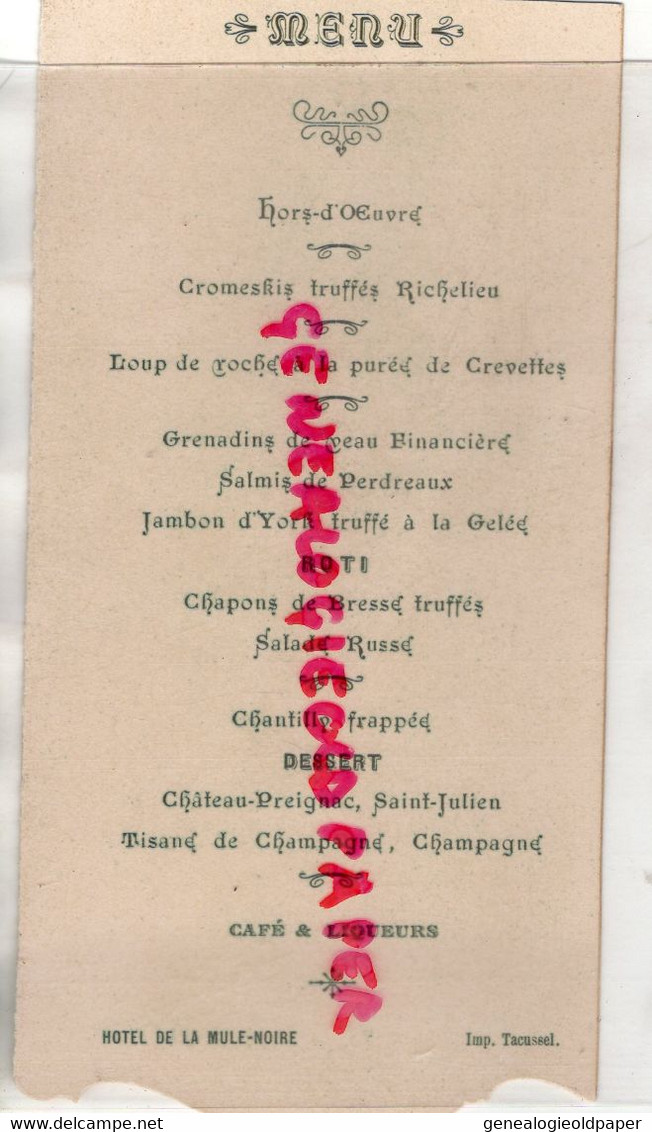 MENU
Hors-d'OEuvre
Cromeskis truffés Richelieu
Loup de roche à la purée de Crevettes
Grenadins de veau Financière
Salmis de Perdreaux
Jambon d'York truffé à la Gelée
ROTI
Chapons de Bresse truffés
Salade Russe
Chantilly frappée
DESSERT
Château-Preignac, Saint-Julien
Tisane de Champagne, Champagne
CAFÉ & LIQUEURS
HOTEL DE LA MULE-NOIRE
Imp. Tacussel.
GENEALOGIEOLDPAPER
genealogieoldpaper